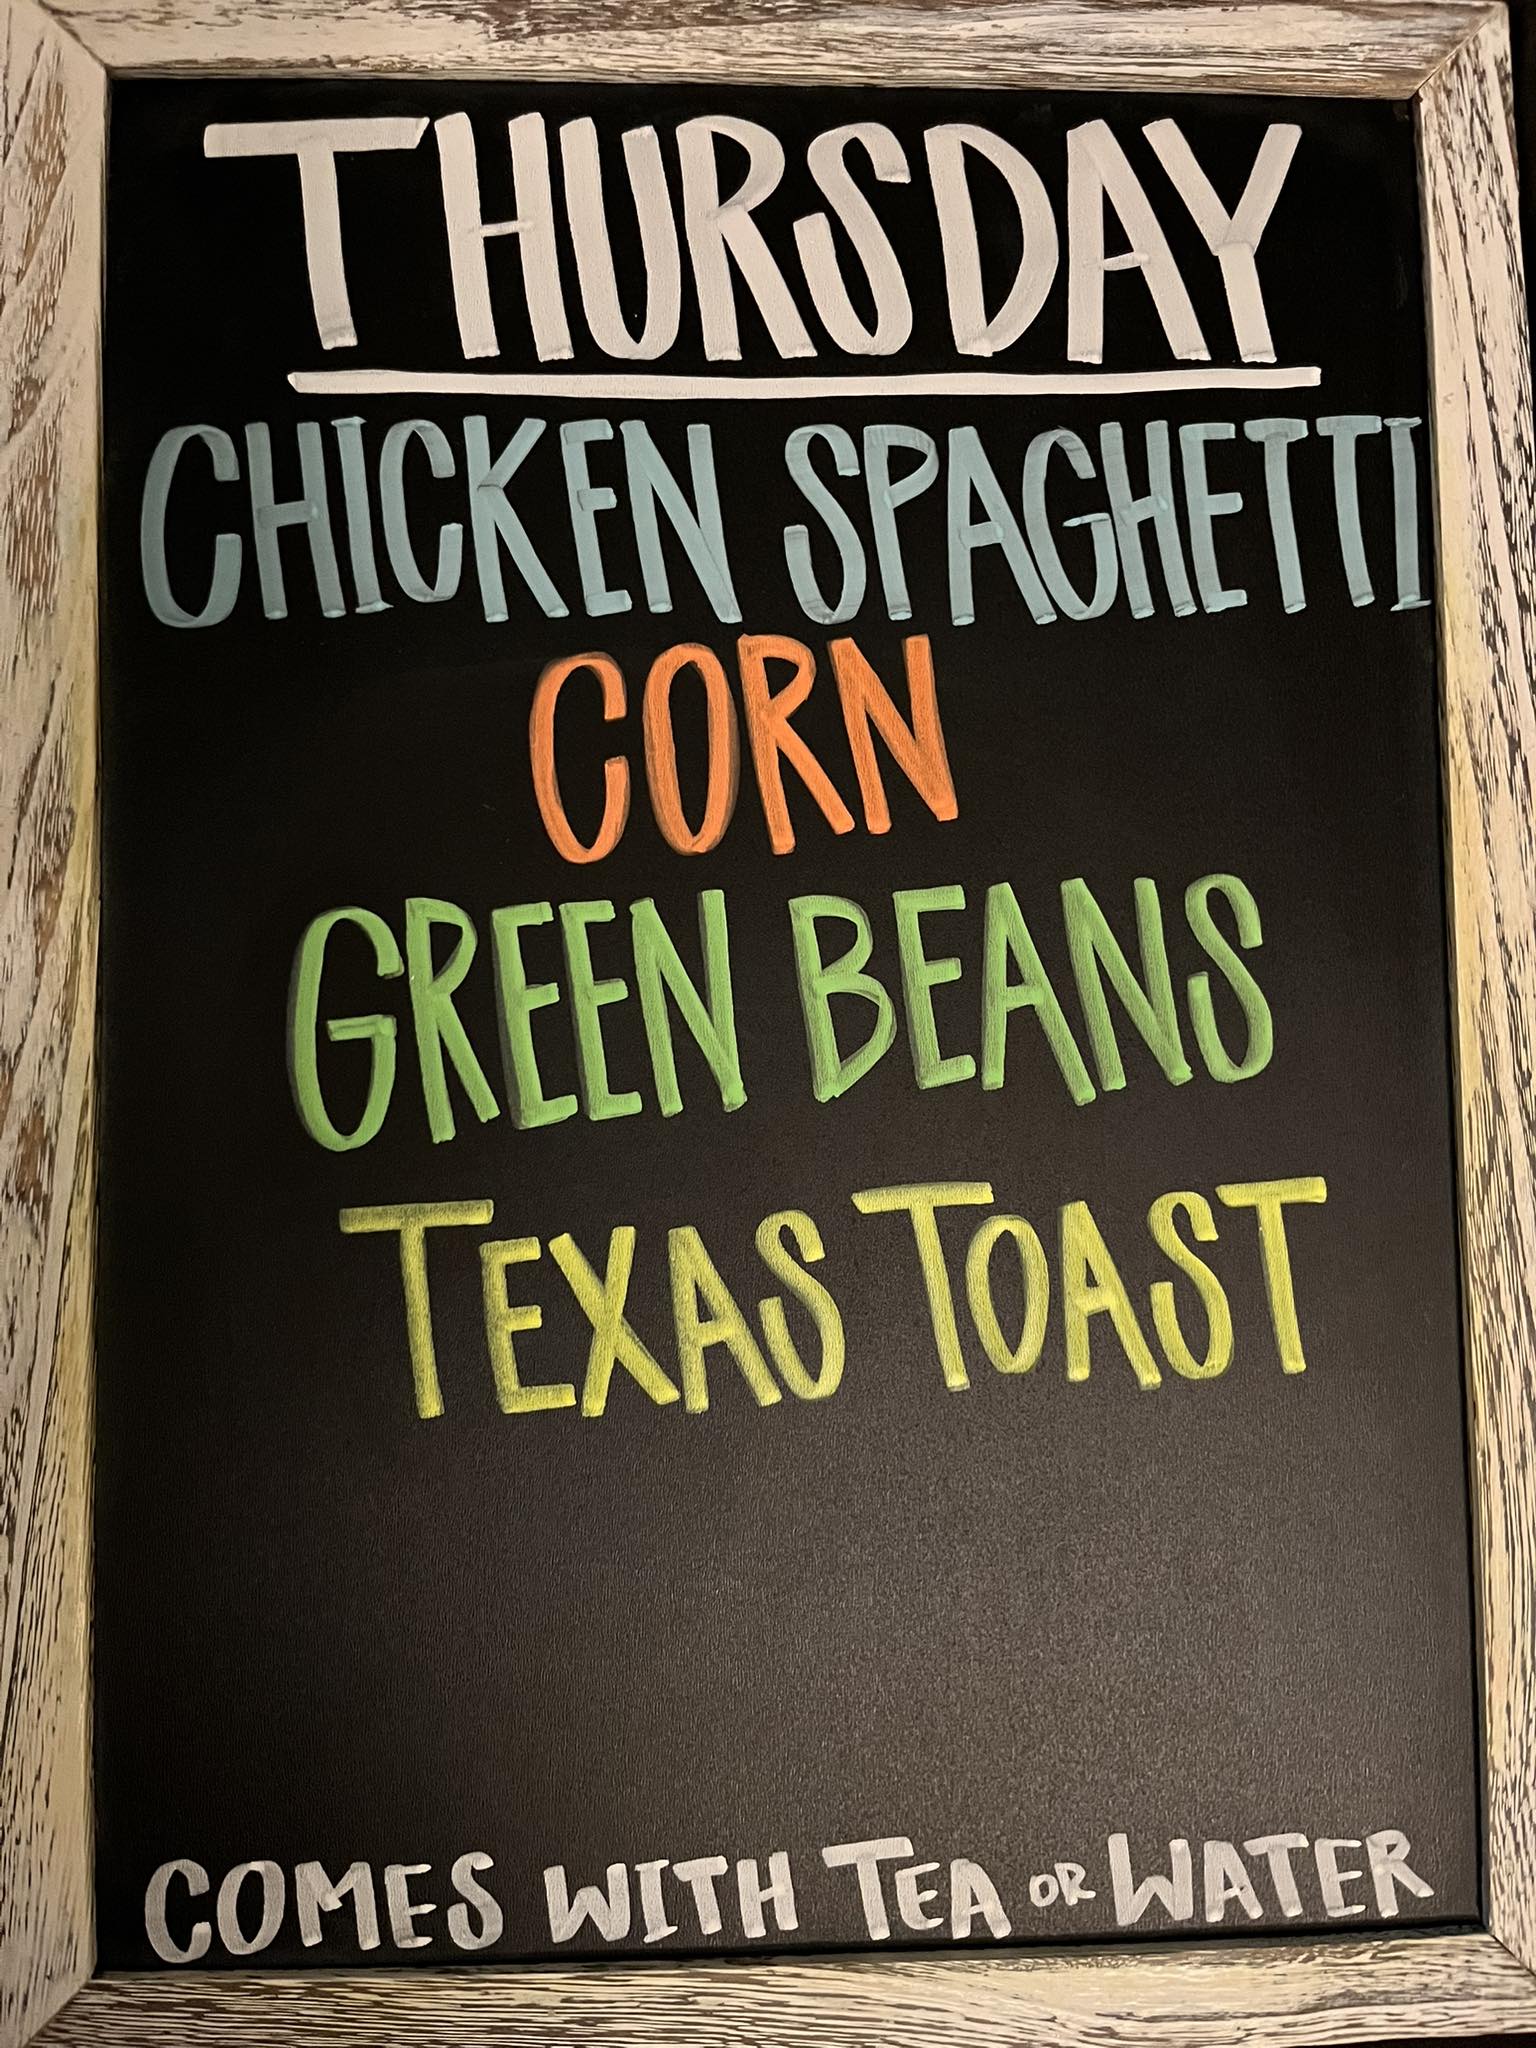 THURSDAY
CHICKEN SPAGHETTI
CORN
GREEN BEANS
TEXAS TOAST
COMES WITH TEA OR WATER